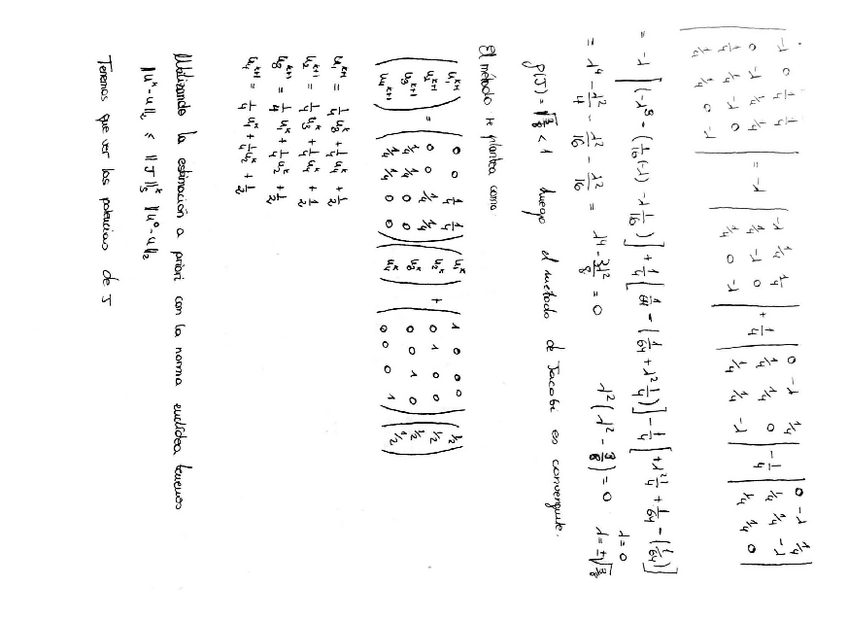 | -λ 0 1/4 1/4 ; 0 -λ 1/4 1/4 ; 1/4 1/4 -λ 0 ; 1/4 1/4 0 -λ | = -λ | -λ 1/4 1/4 ; 1/4 -λ 0 ; 1/4 0 -λ | + 1/4 | 0 -λ 1/4 ; 1/4 1/4 0 ; 1/4 1/4 -λ | - 1/4 | 0 -λ 1/4 ; 1/4 1/4 -λ ; 1/4 1/4 0 |
= -λ [ (-λ³ - (1/16(-λ) - λ 1/16) ] + 1/4 [ 1/64 - (1/64 + λ² 1/4) ] - 1/4 [ + λ² 1/4 + 1/64 - (1/64) ]
= λ⁴ - λ²/4 - λ²/16 - λ²/16 = λ⁴ - 3λ²/8 = 0 λ² (λ² - 3/8) = 0 λ = 0 λ = ±√3/8
ρ(J) = √3/8 < 1 luego el método de Jacobi es convergente.
El método se plantea como
( u₁ᵏ⁺¹ ; u₂ᵏ⁺¹ ; u₃ᵏ⁺¹ ; u₄ᵏ⁺¹ ) = ( 0 0 1/4 1/4 ; 0 0 1/4 1/4 ; 1/4 1/4 0 0 ; 1/4 1/4 0 0 ) ( u₁ᵏ ; u₂ᵏ ; u₃ᵏ ; u₄ᵏ ) + ( 1 0 0 0 ; 0 1 0 0 ; 0 0 1 0 ; 0 0 0 1 ) ( 1/2 ; 1/2 ; 1/2 ; 1/2 )
u₁ᵏ⁺¹ = 1/4 u₃ᵏ + 1/4 u₄ᵏ + 1/2
u₂ᵏ⁺¹ = 1/4 u₃ᵏ + 1/4 u₄ᵏ + 1/2
u₃ᵏ⁺¹ = 1/4 u₁ᵏ + 1/4 u₂ᵏ + 1/2
u₄ᵏ⁺¹ = 1/4 u₁ᵏ + 1/4 u₂ᵏ + 1/2
Utilizando la estimación a priori con la norma euclídea tenemos
‖uᵏ - u‖₂ ≤ ‖J‖ᵏ ‖u⁰ - u‖₂
Tenemos que ver las potencias de J